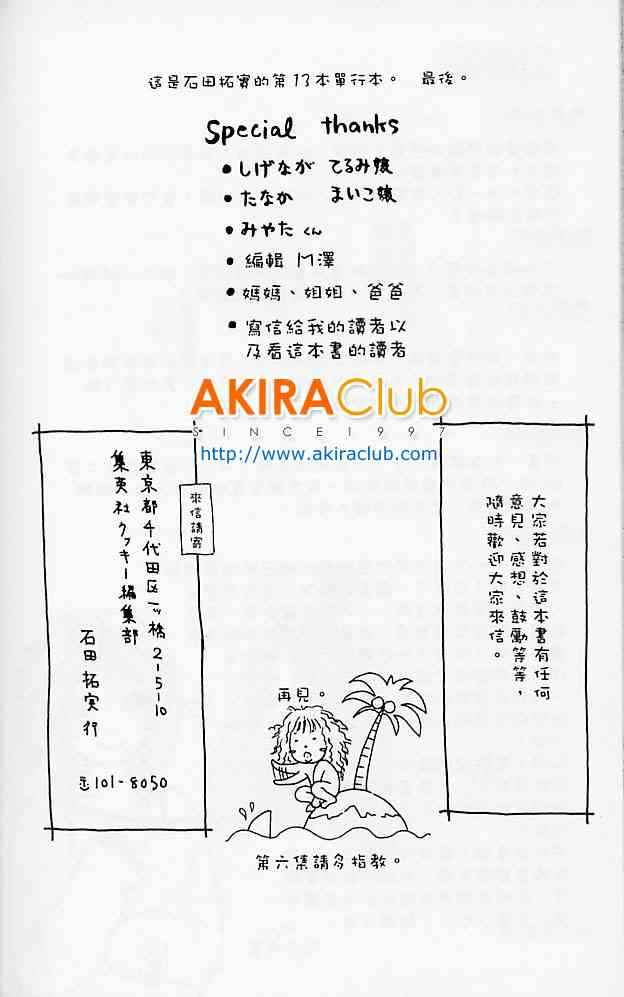 這是石田拓實的第13本單行本。 最後。
Special thanks
•しげなが てるみ嬢
•たなか まいこ嬢
•みやた くん
•編輯 M澤
•媽媽、姐姐、爸爸
•寫信給我的讀者以
及看這本書的讀者
AKIRAClub
SINCE1997
http://www.akiraclub.com
大家若對於這本書有任何
意見、感想、鼓勵等等，
隨時歡迎大家來信。
來信請寄
東京都千代田区一ッ橋2-5-10
集英社クッキー編集部
石田拓実 行
〒101-8050
再見。
第六集請多指教。